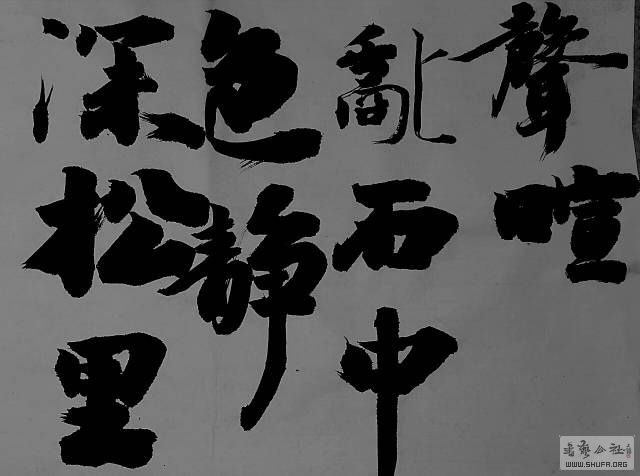 聲喧
亂石中
色静
深松里
書藝公社
WWW.SHUFA.ORG